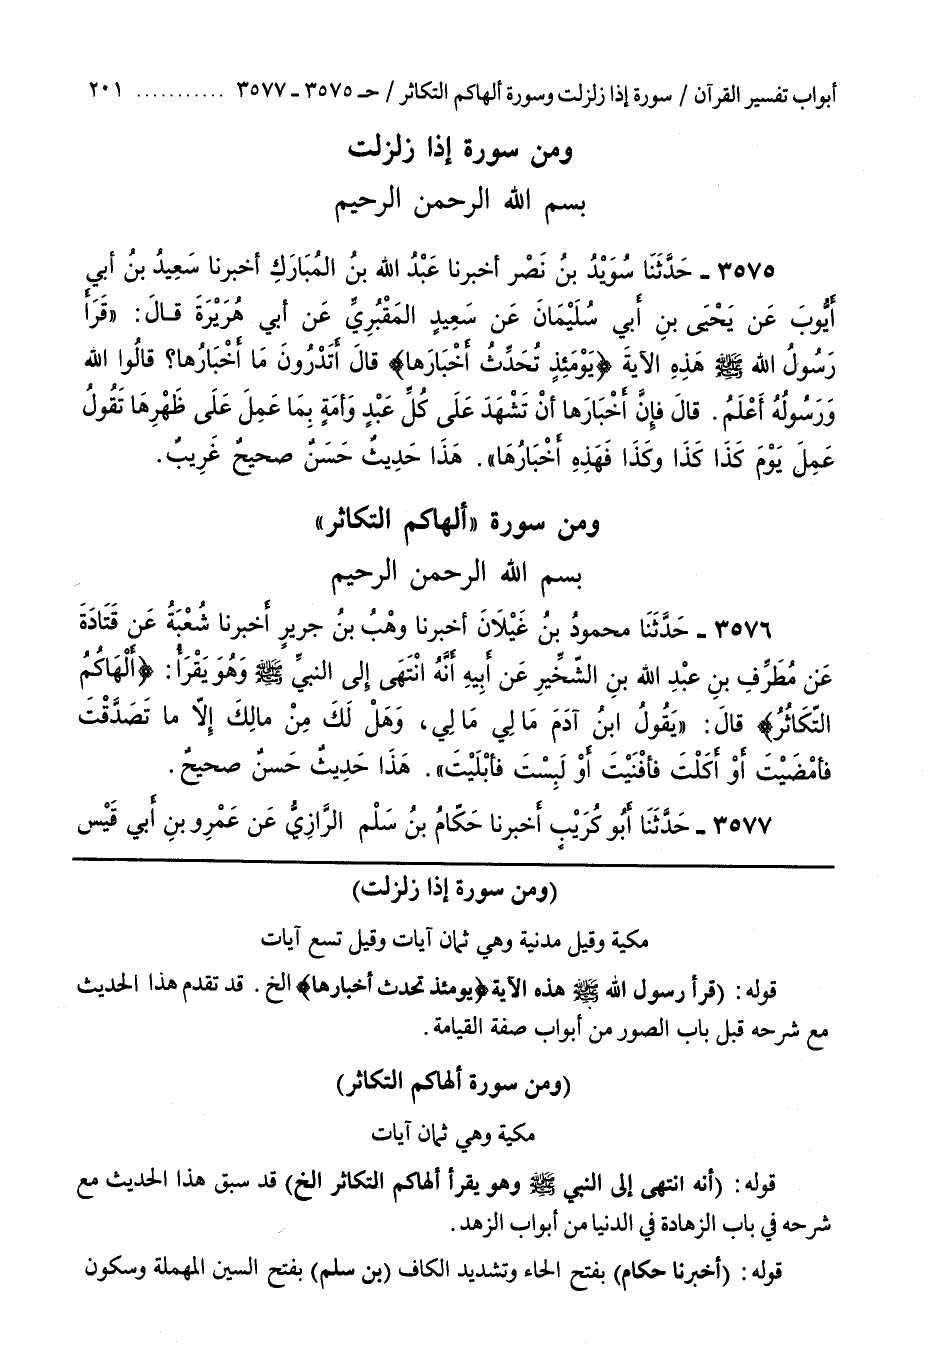 أبواب تفسير القرآن / سورة إذا زلزلت وسورة ألهاكم التكاثر / حـ ٣٥٧٥ ـ ٣٥٧٧ ........... ٢٠١
ومن سورة إذا زلزلت
بسم الله الرحمن الرحيم
٣٥٧٥ ـ حَدَّثَنَا سُوَيْدُ بنُ نَصْر أخبرنا عَبْدُ الله بنُ المُبَارَكِ أخبرنا سَعِيدُ بنُ أبي
أَيُّوبَ عَن يَحْيَى بنِ أَبي سُلَيْمَانَ عَن سَعِيدٍ المَقْبُرِيِّ عَن أبي هُرَيْرَةَ قـالَ: «قَرَأَ
رَسُولُ الله ﷺ هَذِهِ الآيةَ ﴿يَوْمَئِذٍ تُحَدِّثُ أَخْبَارَها﴾ قالَ أَتَدْرُونَ مَا أَخْبَارُها؟ قالُوا الله
وَرَسُولُهُ أَعْلَمُ. قالَ فإِنَّ أَخْبَارَها أنْ تَشْهَدَ عَلَى كُلِّ عَبْدٍ وَأمَةٍ بِمَا عَمِلَ عَلَى ظَهْرِهَا تَقُولُ
عَمِلَ يَوْمَ كَذَا كَذَا وكَذَا فَهَذِهِ أَخْبَارُهَا». هَذَا حَدِيثٌ حَسَنٌ صحيحٌ غَرِيبٌ.
ومن سورة «ألهاكم التكاثر»
بسم الله الرحمن الرحيم
٣٥٧٦ ـ حَدَّثَنَا محمودُ بنُ غَيْلَانَ أخبرنا وهْبُ بنُ جريرٍ أَخبرنا شُعْبَةُ عَن قَتَادَةَ
عَن مُطَرِّفِ بنِ عبْدِ الله بنِ الشِّخِّيرِ عَن أبِيهِ أَنَّهُ انْتَهَى إِلى النبيِّ ﷺ وَهُوَ يَقْرَأُ: ﴿أَلْهَاكُمُ
التّكَاثُرُ﴾ قالَ: «يَقُولُ ابنُ آدَمَ مَا لِي مَا لِي، وَهَلْ لَكَ مِنْ مالِكَ إِلّا ما تَصَدَّقْتَ
فأمْضَيْتَ أَوْ أَكَلْتَ فأفْنَيْتَ أَوْ لَبِسْتَ فأبْلَيْتَ». هَذَا حَدِيثٌ حَسنٌ صحيحٌ.
٣٥٧٧ ـ حَدَّثَنَا أَبُو كُرَيْبٍ أخبرنا حَكّامُ بنُ سَلْم الرَّازِيُّ عَن عَمْرِو بنِ أبي قَيْس
(ومن سورة إذا زلزلت)
مكية وقيل مدنية وهي ثمان آيات وقيل تسع آيات
قوله: (قرأ رسول الله ﷺ هذه الآية ﴿يومئذ تحدث أخبارها﴾ الخ. قد تقدم هذا الحديث
مع شرحه قبل باب الصور من أبواب صفة القيامة.
(ومن سورة ألهاكم التكاثر)
مكية وهي ثمان آيات
قوله: (أنه انتهى إلى النبي ﷺ وهو يقرأ ألهاكم التكاثر الخ) قد سبق هذا الحديث مع
شرحه في باب الزهادة في الدنيا من أبواب الزهد.
قوله: (أخبرنا حكام) بفتح الحاء وتشديد الكاف (بن سلم) بفتح السين المهملة وسكون